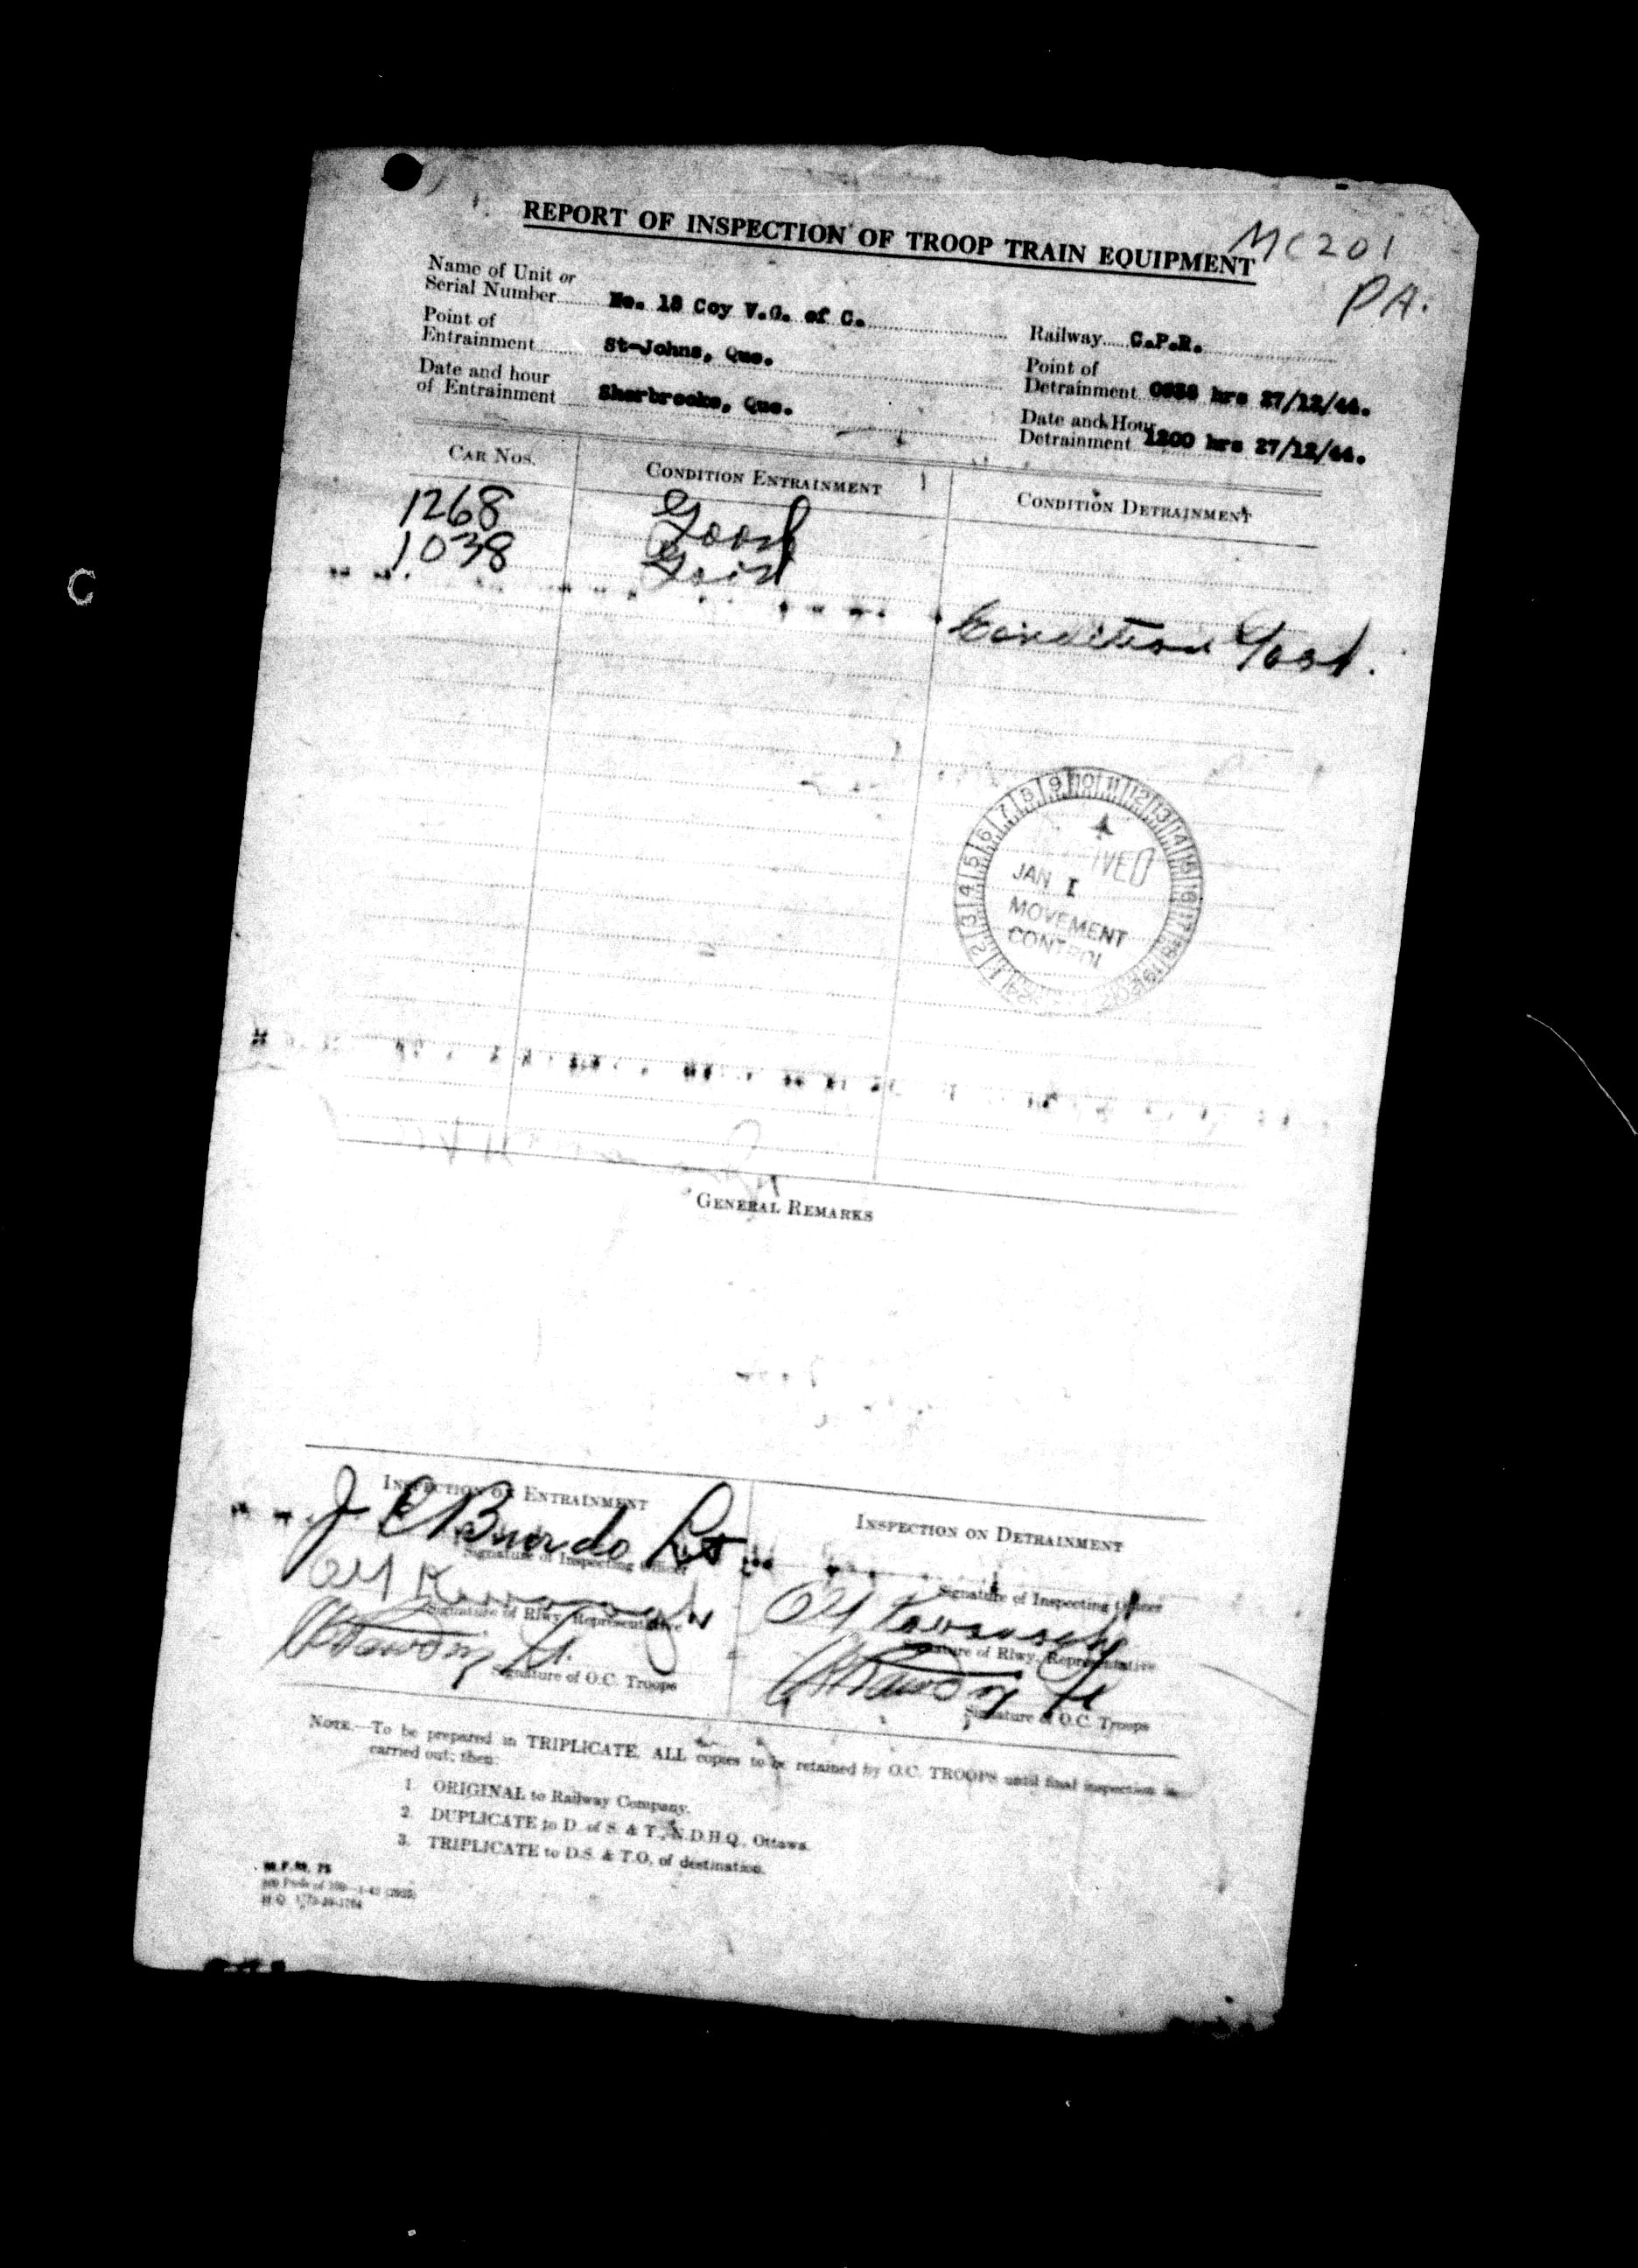 MC201
P.A.
REPORT OF INSPECTION OF TROOP TRAIN EQUIPMENT
Name of Unit or
Serial Number No. 18 Coy V.G. of C.
Railway C.P.R.
Point of
Entrainment St-Johns, Que.
Point of
Detrainment hrs 27/12/44.
Date and hour
of Entrainment Sherbrooke, Que.
Date and Hour
Detrainment 1200 hrs 27/12/44.
CAR NOS. CONDITION ENTRAINMENT CONDITION DETRAINMENT
1268 Good
1038 Good
Condition Good.
1 2 3 4 5 6 7 8 9 10 11 12 13 14 15 16 17 18 19 20 24
IVED
JAN I
MOVEMENT
CONTROL
GENERAL REMARKS
INSPECTION ON ENTRAINMENT
INSPECTION ON DETRAINMENT
J E Burdo Lt
Signature of Inspecting Officer
Signature of Inspecting Officer
Signature of Rlwy. Representative
Signature of Rlwy. Representative
Lt.
Signature of O.C. Troops
Lt
Signature of O.C. Troops
NOTE.—To be prepared in TRIPLICATE. ALL copies to be retained by O.C. TROOPS until final inspection is
carried out; then:
1. ORIGINAL to Railway Company.
2. DUPLICATE to D. of S. & T., N.D.H.Q., Ottawa.
3. TRIPLICATE to D.S. & T.O. of destination.
M.F.M. 75
H.Q.
C